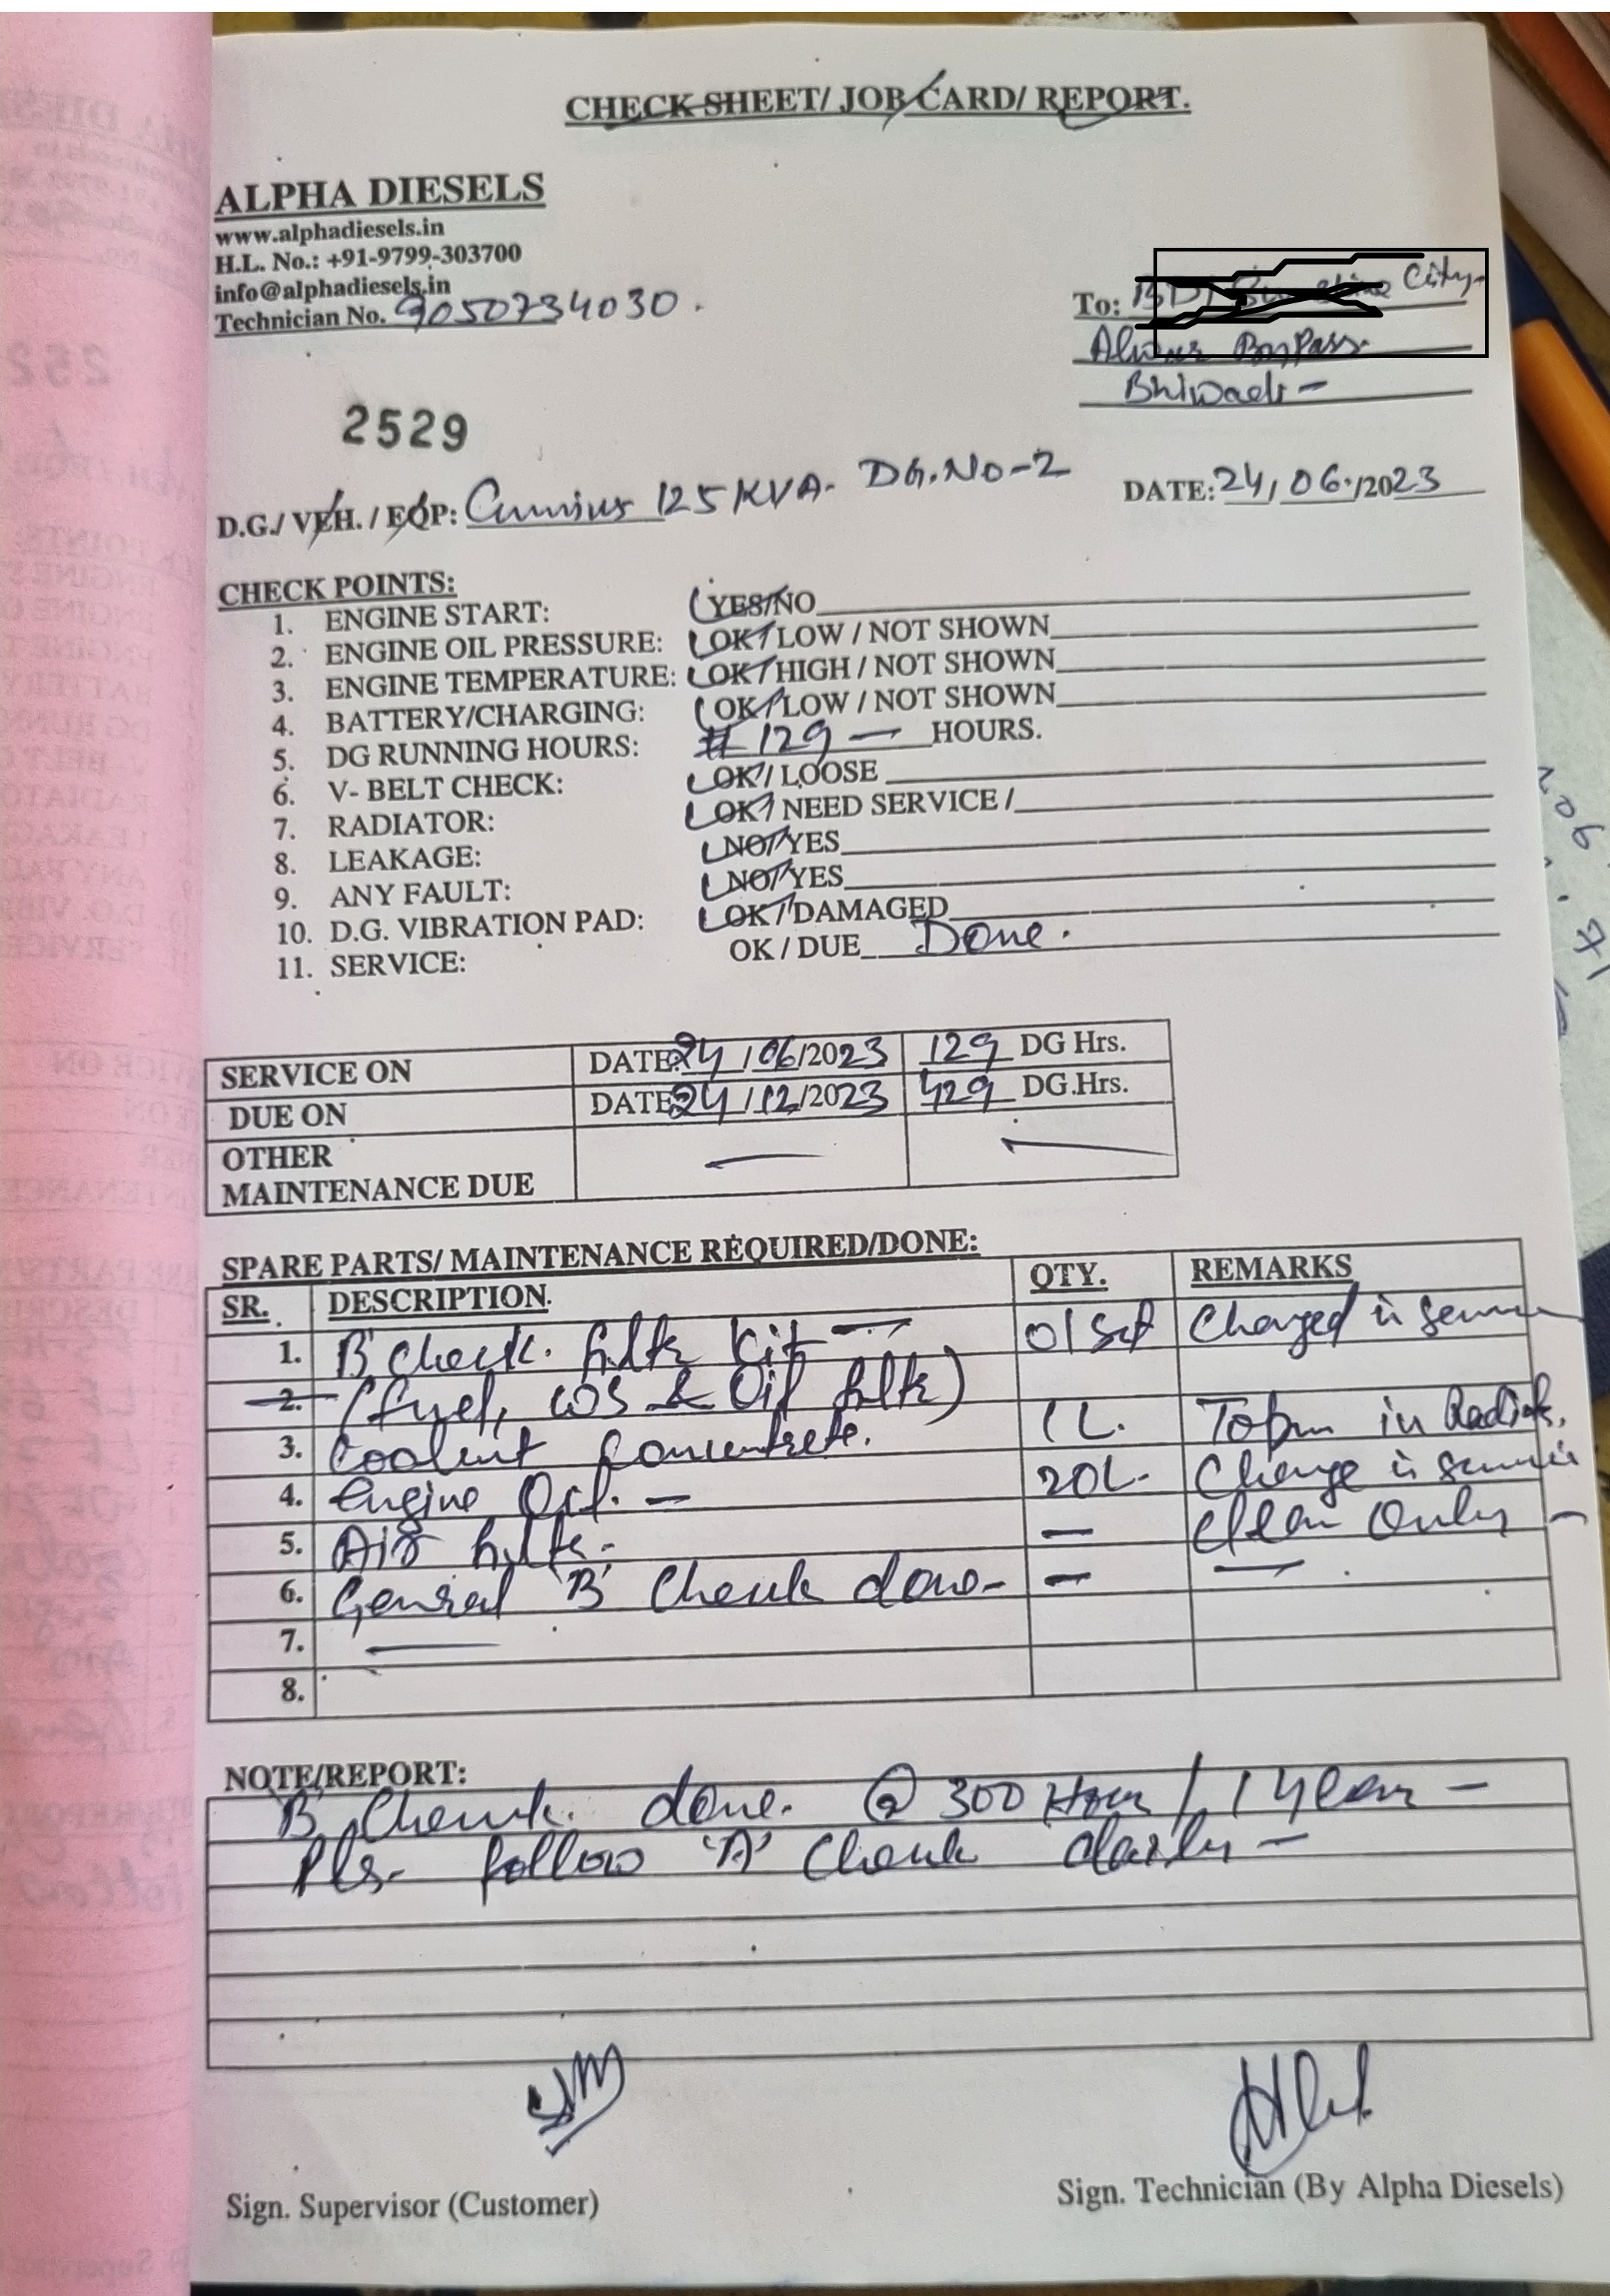 CHECK SHEET/ JOB CARD/ REPORT.
ALPHA DIESELS
www.alphadiesels.in
H.L. No.: +91-9799-303700
info@alphadiesels.in
Technician No. 9050734030.
To: City-
Alwar Bypass
Bhiwadi -
2529
D.G./ VEH. / EQP: Cummins 125 KVA- DG.No-2
DATE: 24/06/2023
CHECK POINTS:
1. ENGINE START: YES/NO
2. ENGINE OIL PRESSURE: OK / LOW / NOT SHOWN
3. ENGINE TEMPERATURE: OK / HIGH / NOT SHOWN
4. BATTERY/CHARGING: OK / LOW / NOT SHOWN
5. DG RUNNING HOURS: # 129 — HOURS.
6. V- BELT CHECK: OK / LOOSE
7. RADIATOR: OK / NEED SERVICE /
8. LEAKAGE: NO / YES
9. ANY FAULT: NO / YES
10. D.G. VIBRATION PAD: OK / DAMAGED
11. SERVICE: OK / DUE Done.
SERVICE ON DATE: 24/06/2023 129 DG Hrs.
DUE ON DATE: 24/12/2023 429 DG.Hrs.
OTHER MAINTENANCE DUE — —
SPARE PARTS/ MAINTENANCE REQUIRED/DONE:
SR. DESCRIPTION QTY. REMARKS
1. 'B' Check. filter Kit — 01 Set Changed in service
2. (fuel, WS & Oil filter)
3. Coolent Concentrete. 1L. Topup in Radiator.
4. Engine Oil. — 20L- Change in service
5. Air filter. — Clean Only —
6. General 'B' Check done- — —
7. —
8.
NOTE/REPORT:
'B' Check. done. @ 300 Hours / 1 year —
Pls- follow 'A' Check daily —
Sign. Supervisor (Customer)
Sign. Technician (By Alpha Diesels)